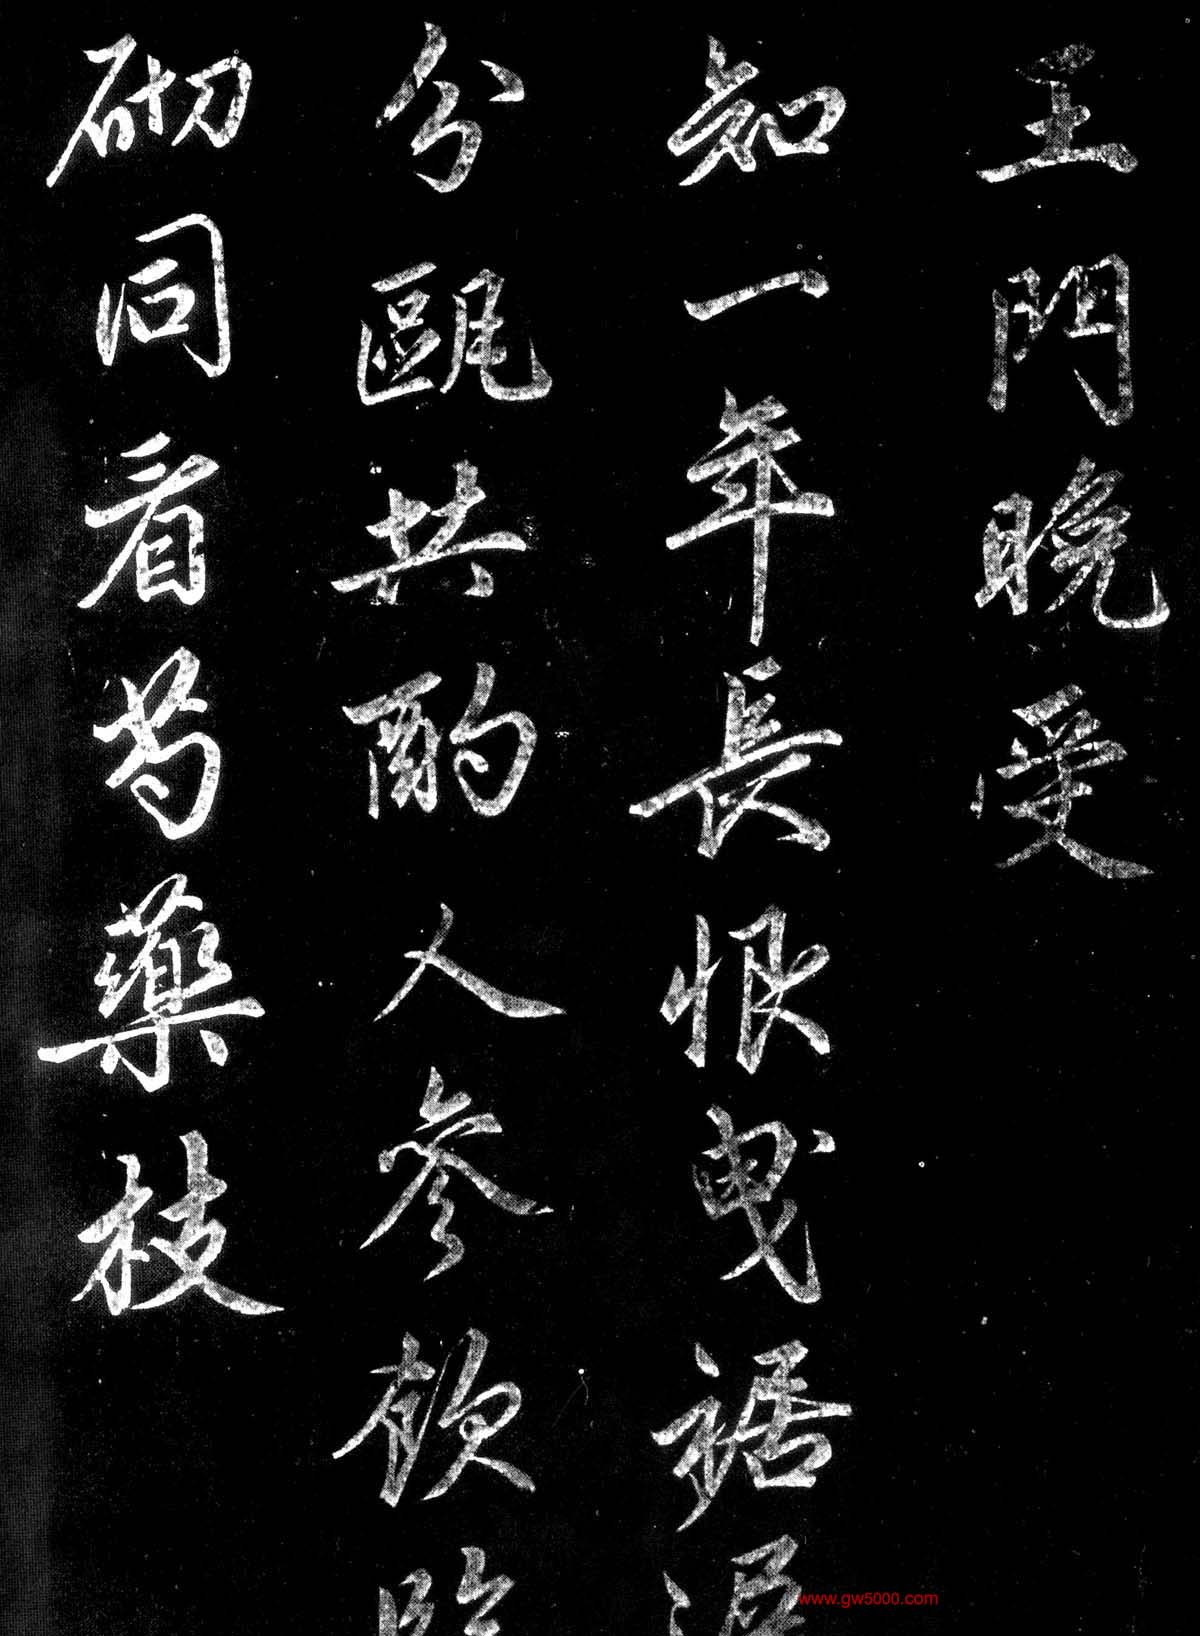 王門晚受
知一年長恨曳裾遲
分甌共酌人參飲臨
砌同看芍藥枝
www.gw5000.com